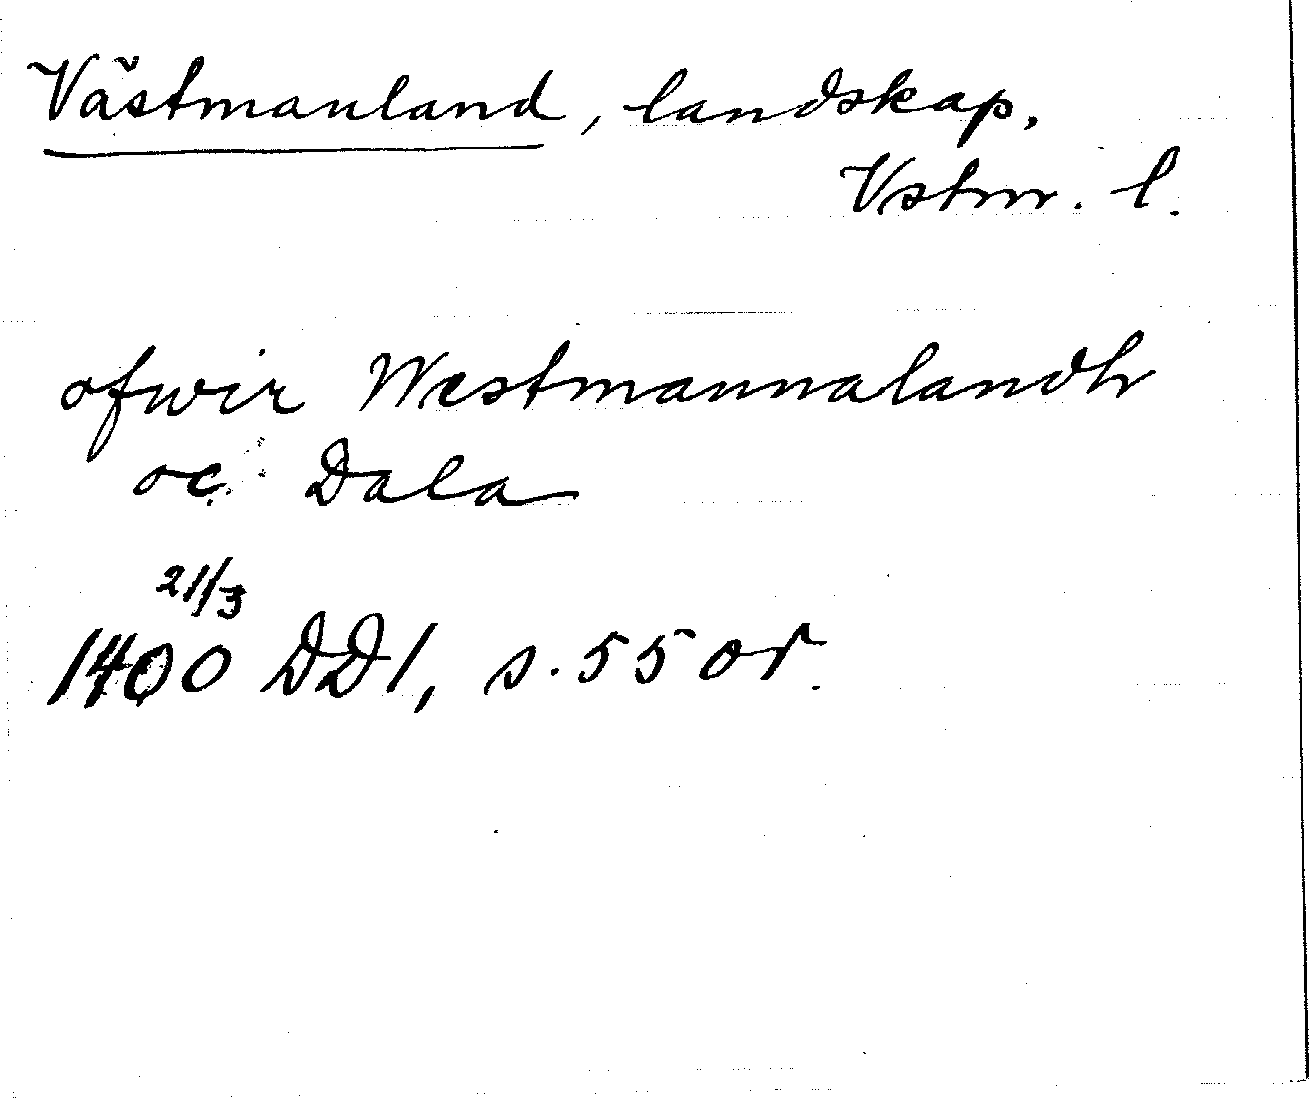 Västmanland, landskap.
Vstm. l.
ofwir Westmannalandh
oc Dala
21/3
1400 DD1, s. 55 or.